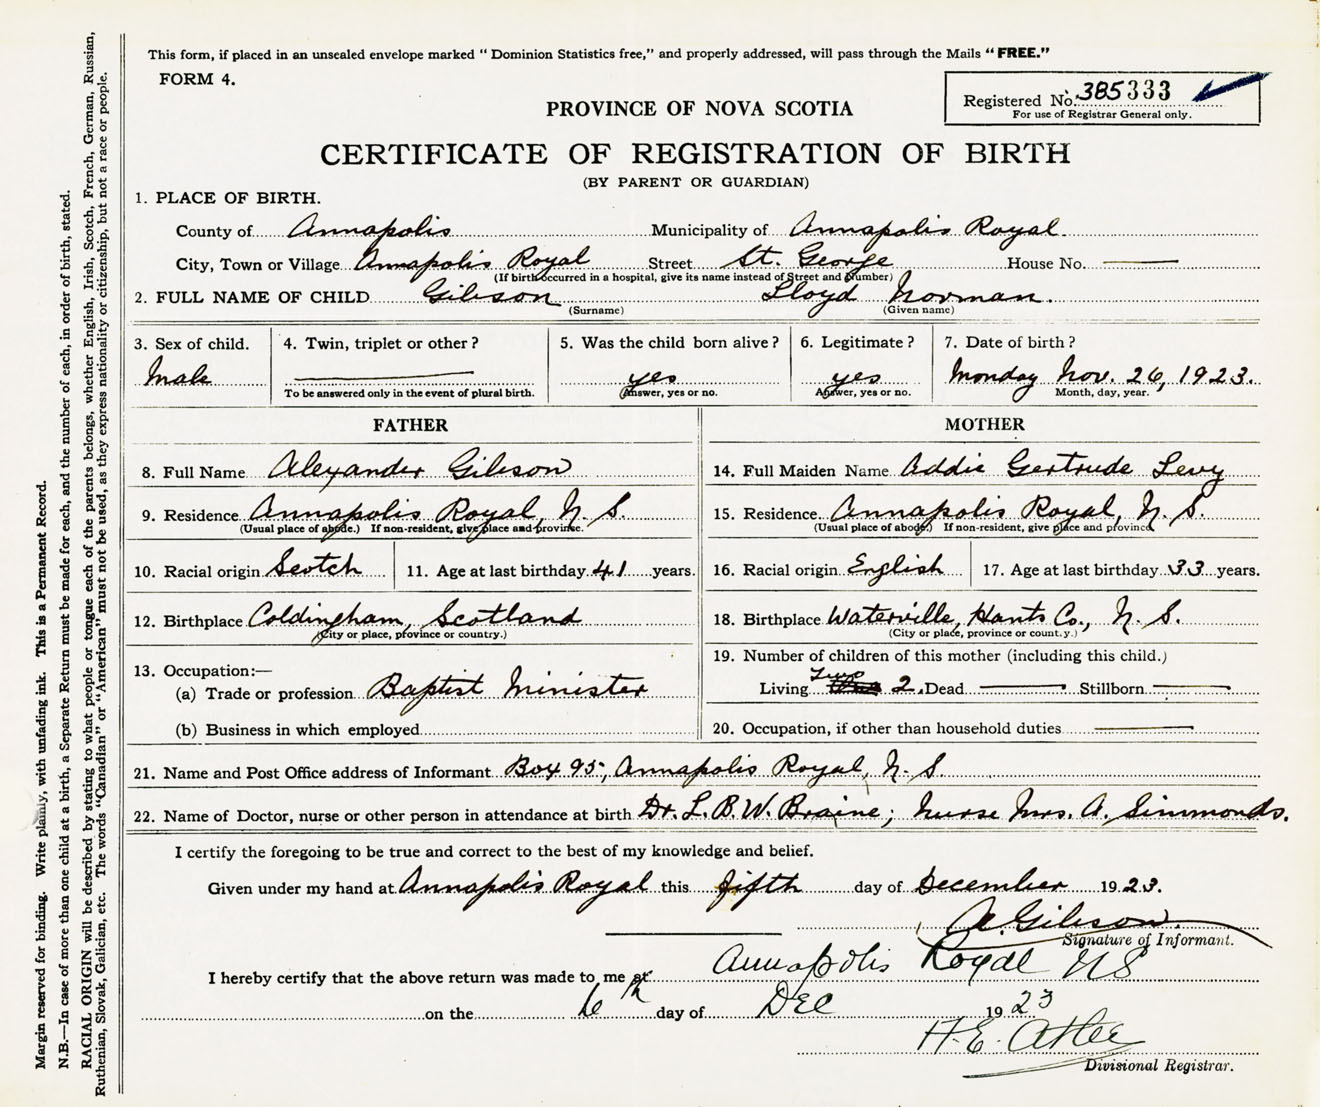 This form, if placed in an unsealed envelope marked "Dominion Statistics free," and properly addressed, will pass through the Mails "FREE."
FORM 4.
Registered No. 385333
For use of Registrar General only.
PROVINCE OF NOVA SCOTIA
CERTIFICATE OF REGISTRATION OF BIRTH
(BY PARENT OR GUARDIAN)
1. PLACE OF BIRTH.
County of Annapolis Municipality of Annapolis Royal.
City, Town or Village Annapolis Royal Street St. George House No. ——
(If birth occurred in a hospital, give its name instead of Street and Number)
2. FULL NAME OF CHILD Gibson Lloyd Norman.
(Surname) (Given name)
3. Sex of child. 4. Twin, triplet or other? 5. Was the child born alive? 6. Legitimate? 7. Date of birth?
Male —— yes yes Monday Nov. 26, 1923.
To be answered only in the event of plural birth. Answer, yes or no. Answer, yes or no. Month, day, year.
FATHER
8. Full Name Alexander Gibson
9. Residence Annapolis Royal, N. S.
(Usual place of abode.) If non-resident, give place and province.
10. Racial origin Scotch 11. Age at last birthday 41 years.
12. Birthplace Coldingham, Scotland
(City or place, province or country.)
13. Occupation:—
(a) Trade or profession Baptist Minister
(b) Business in which employed
MOTHER
14. Full Maiden Name Addie Gertrude Levy
15. Residence. Annapolis Royal, N. S.
(Usual place of abode.) If non-resident, give place and province
16. Racial origin English 17. Age at last birthday 33 years.
18. Birthplace Waterville, Hants Co., N. S.
(City or place, province or country.)
19. Number of children of this mother (including this child.)
Living Two 2. Dead —— Stillborn ——
20. Occupation, if other than household duties ——
21. Name and Post Office address of Informant Box 95, Annapolis Royal, N. S.
22. Name of Doctor, nurse or other person in attendance at birth Dr. L. B. W. Braine; Nurse Mrs. A. Simmonds.
I certify the foregoing to be true and correct to the best of my knowledge and belief.
Given under my hand at Annapolis Royal this fifth day of December 1923.
A. Gibson.
Signature of Informant.
I hereby certify that the above return was made to me at Annapolis Royal NS
on the 6th day of Dec 1923
H. E. Atlee
Divisional Registrar.
Margin reserved for binding. Write plainly, with unfading ink. This is a Permanent Record.
N.B.—In case of more than one child at a birth, a Separate Return must be made for each, and the number of each, in order of birth, stated.
RACIAL ORIGIN will be described by stating to what people or tongue each of the parents belongs, whether English, Irish, Scotch, French, German, Russian,
Ruthenian, Slovak, Galician, etc. The words "Canadian" or "American" must not be used, as they express nationality or citizenship, but not a race or people.